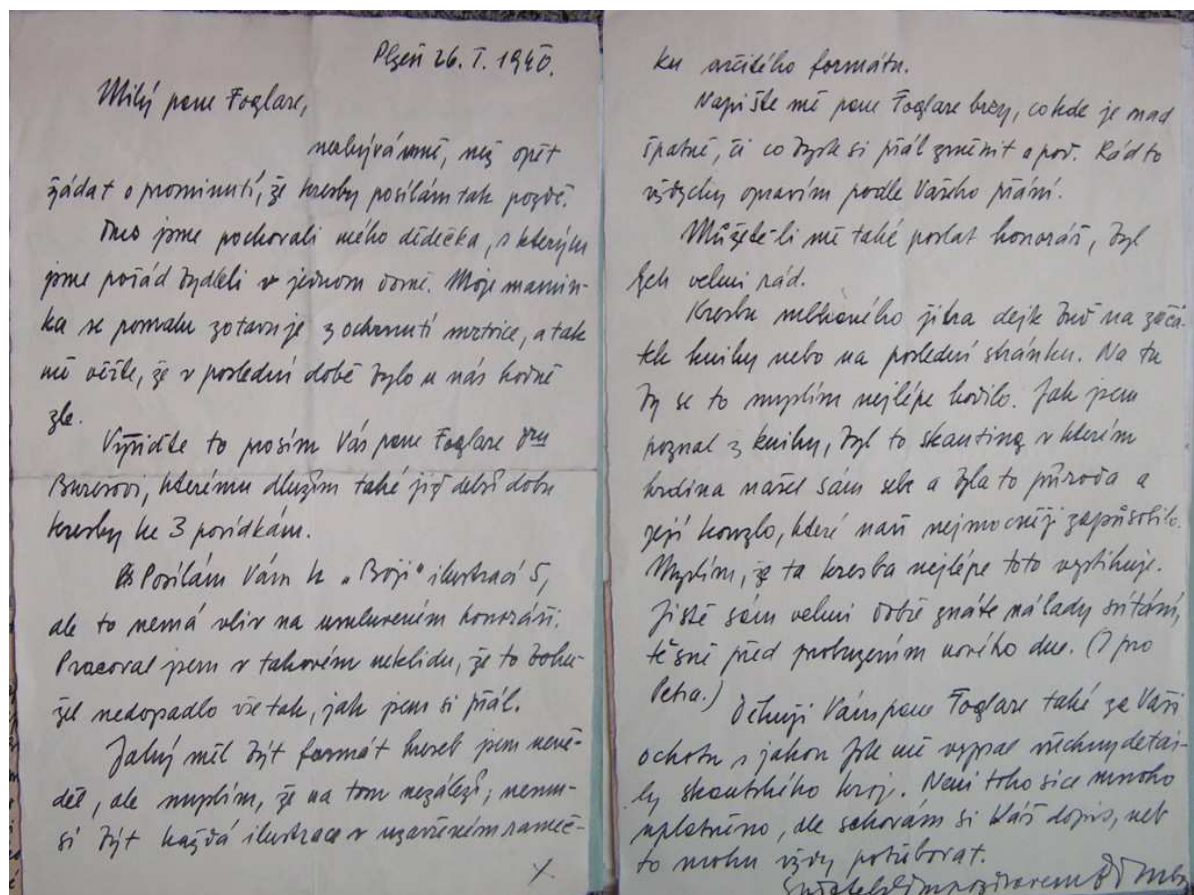 Plzeň 26. I. 1940.
Milý pane Foglare,
nezbývá mně, než opět
žádat o prominutí, že kresby posílám tak pozdě.
Dnes jsme pochovali mého dědečka, s kterým
jsme pořád bydleli v jednom domě. Moje mamin-
ka se pomalu zotavuje z ochrnutí mrtvice, a tak
mě věřte, že v poslední době bylo u nás hodně
zle.
Vyřiďte to prosím Vás pane Foglare dru
Burešovi, kterému dlužím také již delší dobu
kresby ke 3 povídkám.
Posílám Vám k „Boji" ilustrací 5,
ale to nemá vliv na umluveném honoráři.
Pracoval jsem v takovém neklidu, že to bohu-
žel nedopadlo vše tak, jak jsem si přál.
Jaký měl být formát kreseb jsem nevě-
děl, ale myslím, že na tom nezáleží; nemu-
sí být každá ilustrace v uzavřeném rameč-
ku určitého formátu.
Napište mě pane Foglare brzy, co kde je snad
špatné, či co byste si přál změnit a pod. Rád to
vždycky opravím podle Vašeho přání.
Můžete-li mě také poslat honorář, byl
bych velmi rád.
Kresbu mlhavého jitra dejte buď na začá-
tek knihy nebo na poslední stránku. Na tu
by se to myslím nejlépe hodilo. Jak jsem
poznal z knihy, byl to skauting v kterém
hrdina našel sám sebe a byla to příroda a
její kouzlo, které naň nejmocněji zapůsobilo.
Myslím, že ta kresba nejlépe toto vystihuje.
Jistě sám velmi dobře znáte nálady svítání,
těsně před probuzením nového dne. (I pro
Petra.)
Děkuji Vám pane Foglare také za Vaši
ochotu s jakou jste mě vypsal všechny detai-
ly skautského kroje. Není toho sice mnoho
uplatněno, ale schovám si Váš dopis, neb
to mohu vždy potřebovat.
S přátelským pozdravem